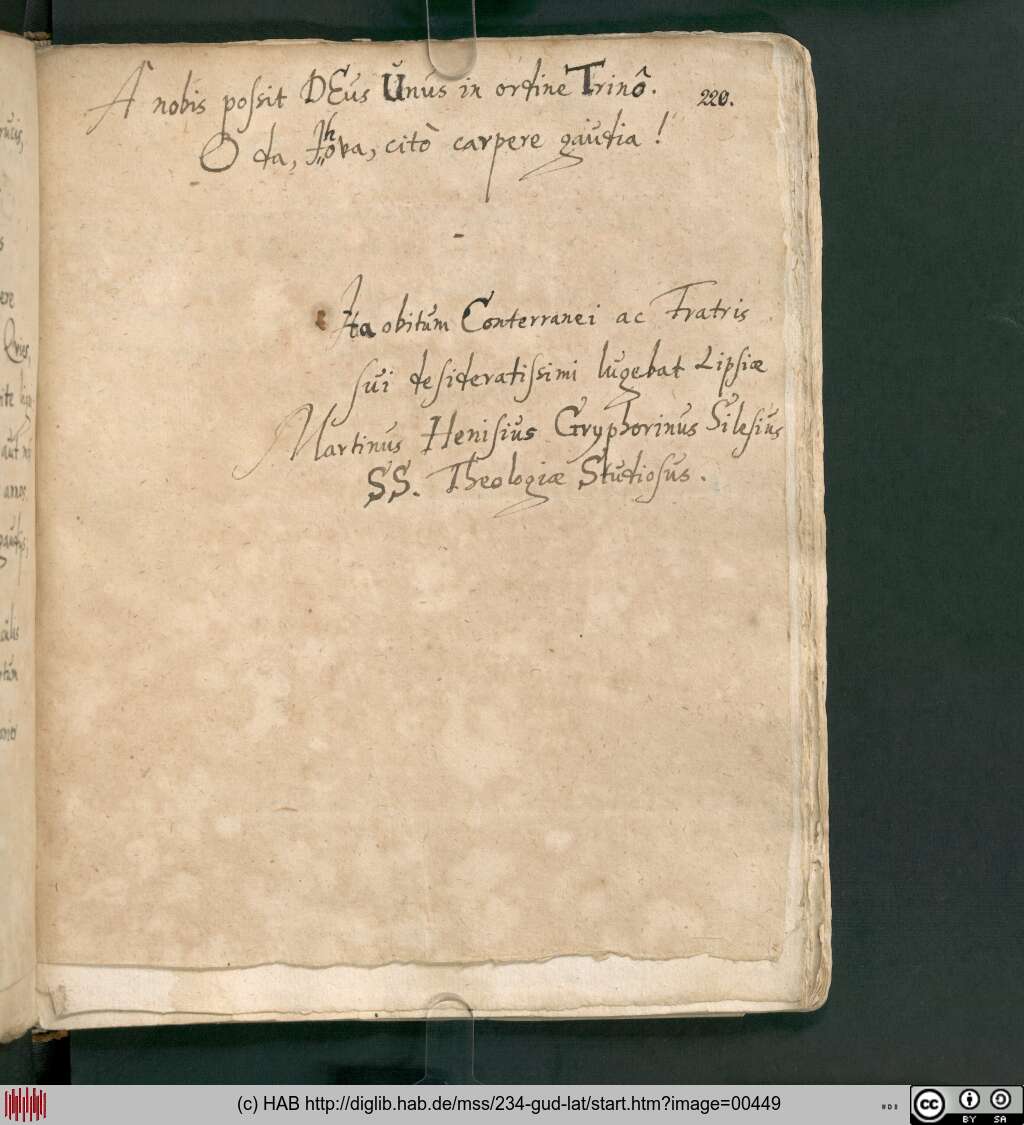 A nobis possit DEus Unus in ordine Trinô. 220.
O da, Jhova, citò carpere gaudia!
Ita obitum Conterranei ac Fratris
sui desideratissimi lugebat Lipsiæ
Martinus Henisius Gryphorinus Silesius
SS. Theologiæ Studiosus.
(c) HAB http://diglib.hab.de/mss/234-gud-lat/start.htm?image=00449
cc BY SA